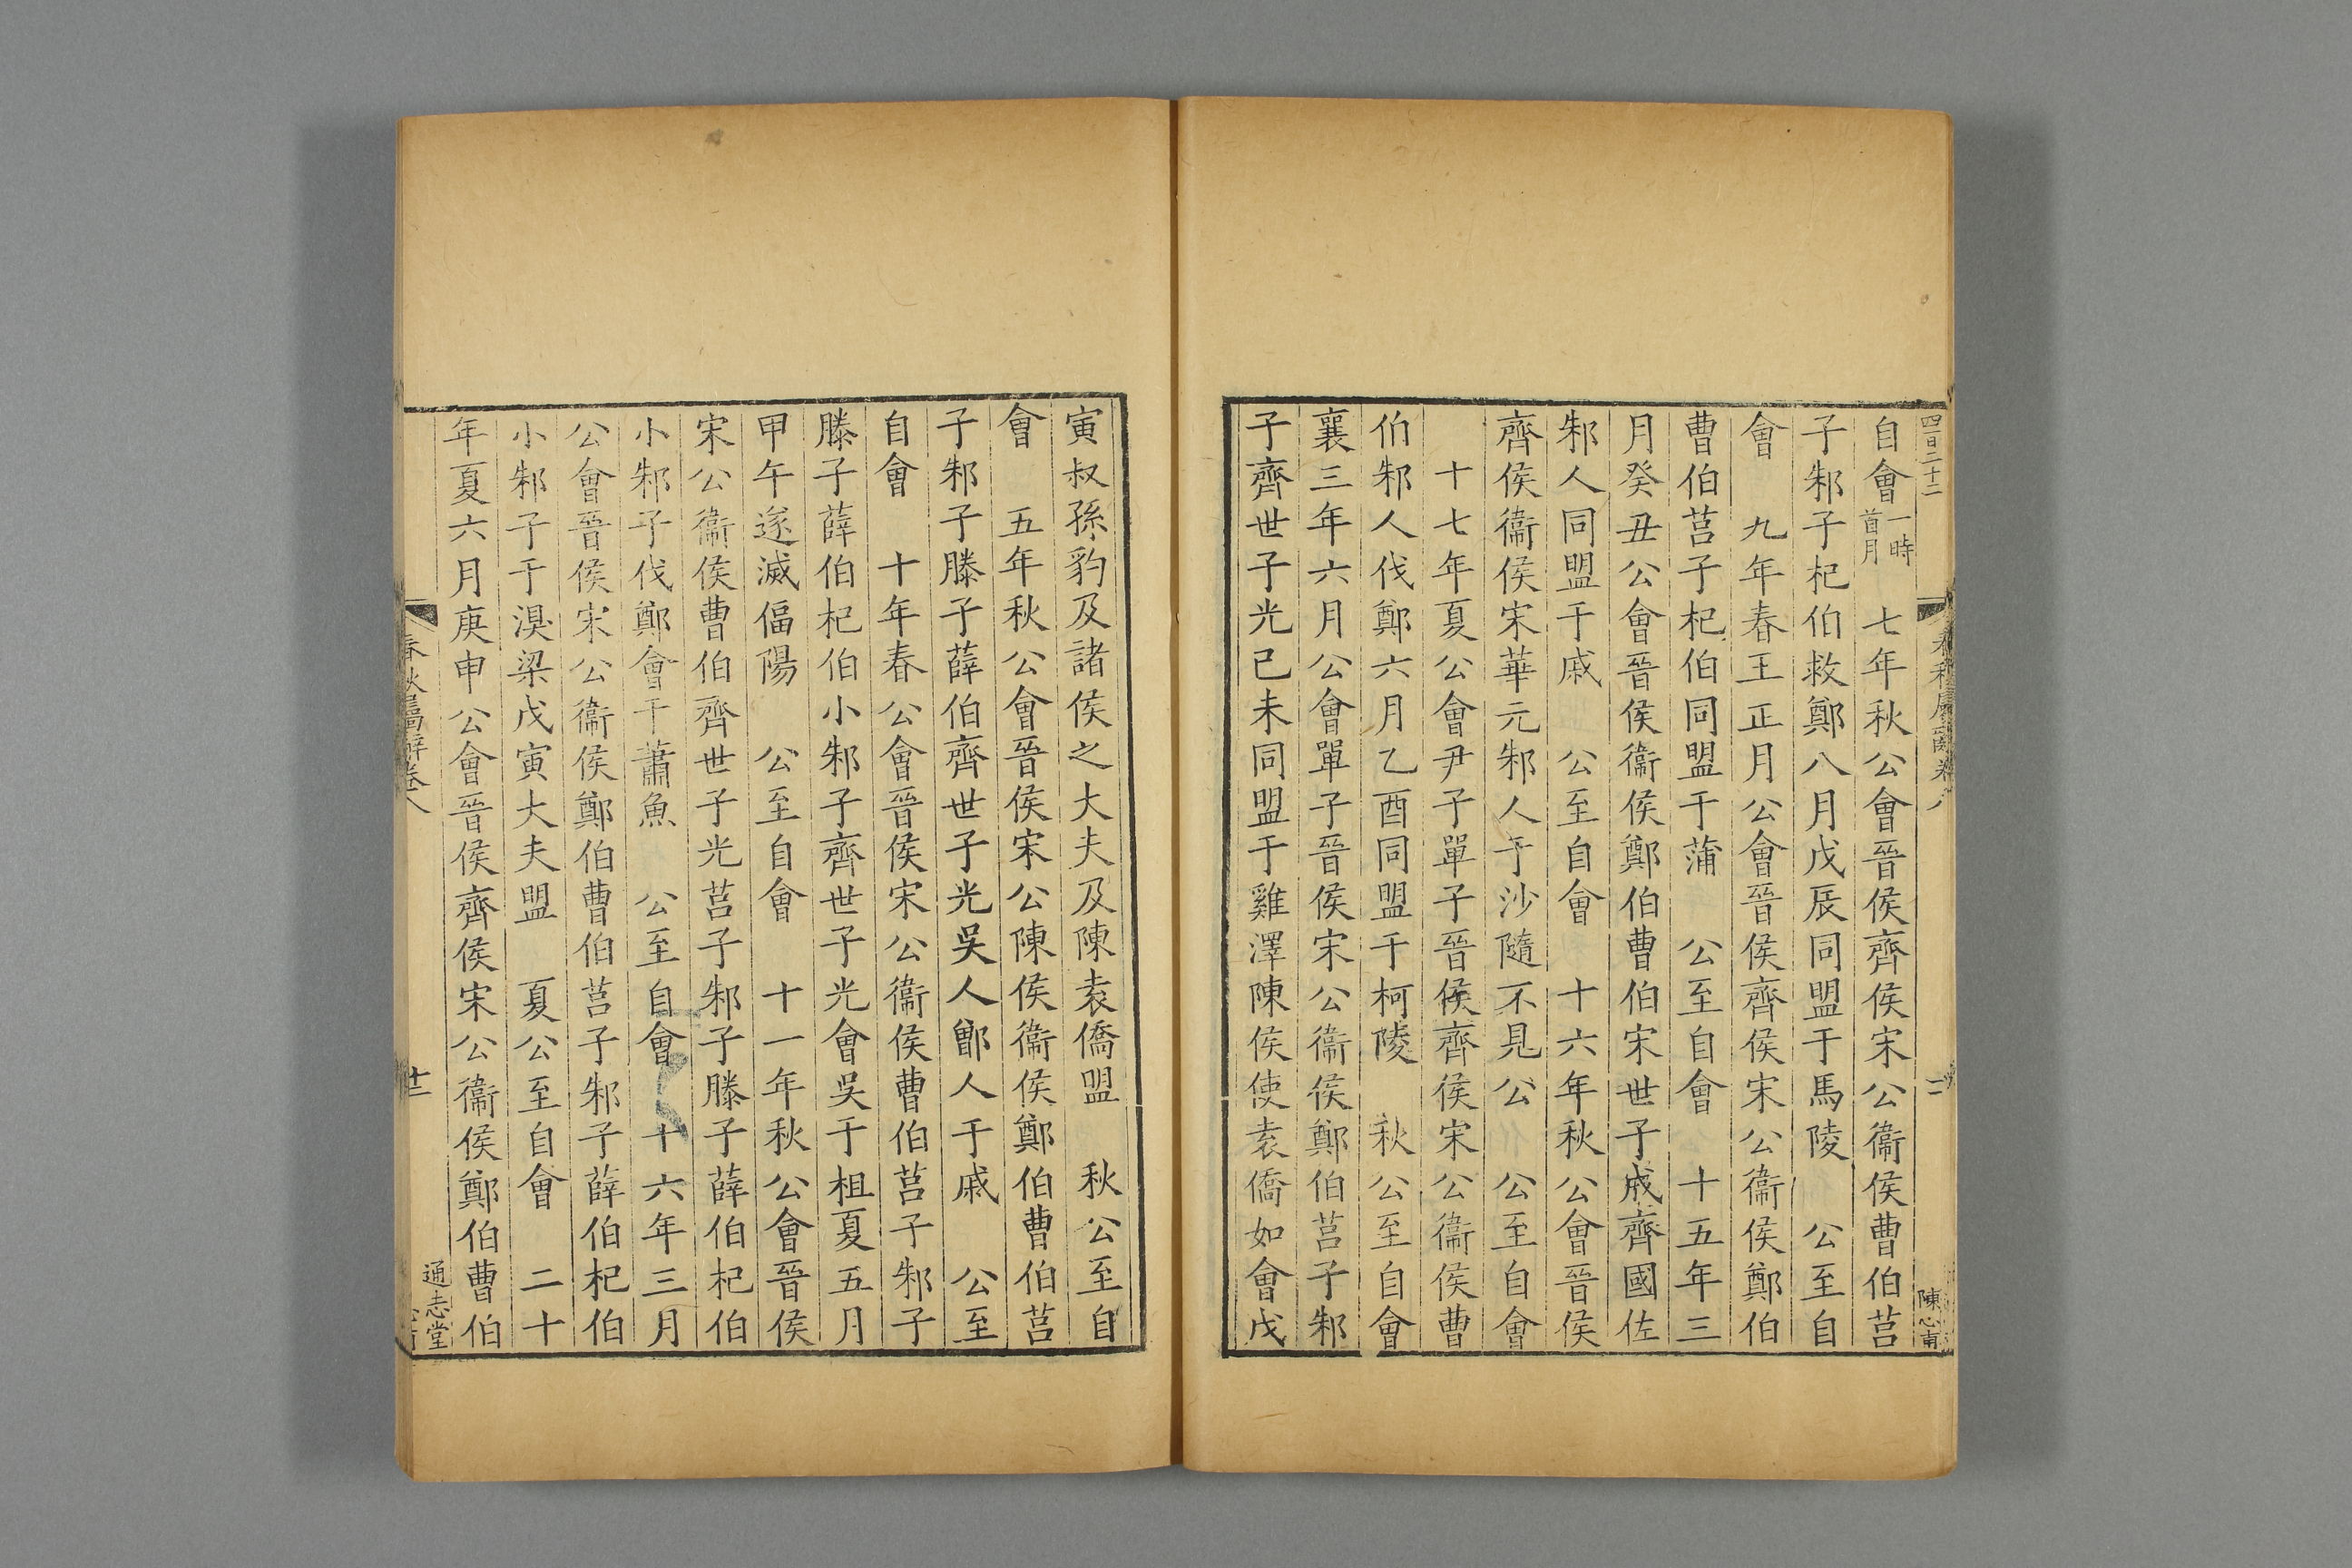 四百二十二
自會一時首月　七年秋公會晉侯齊侯宋公衞侯曹伯莒
子邾子杞伯救鄭八月戊辰同盟于馬陵　公至自
會　九年春王正月公會晉侯齊侯宋公衞侯鄭伯
曹伯莒子杞伯同盟于蒲　公至自會　十五年三
月癸丑公會晉侯衞侯鄭伯曹伯宋世子成齊國佐
邾人同盟于戚　公至自會　十六年秋公會晉侯
齊侯衞侯宋華元邾人于沙隨不見公　公至自會
　十七年夏公會尹子單子晉侯齊侯宋公衞侯曹
伯邾人伐鄭六月乙酉同盟于柯陵　秋公至自會
襄三年六月公會單子晉侯宋公衞侯鄭伯莒子邾
子齊世子光己未同盟于雞澤陳侯使袁僑如會戊
寅叔孫豹及諸侯之大夫及陳袁僑盟　秋公至自
會　五年秋公會晉侯宋公陳侯衞侯鄭伯曹伯莒
子邾子滕子薛伯齊世子光吳人鄫人于戚　公至
自會　十年春公會晉侯宋公衞侯曹伯莒子邾子
滕子薛伯杞伯小邾子齊世子光會吳于柤夏五月
甲午遂滅偪陽　公至自會　十一年秋公會晉侯
宋公衞侯曹伯齊世子光莒子邾子滕子薛伯杞伯
小邾子伐鄭會于蕭魚　公至自會　十六年三月
公會晉侯宋公衞侯鄭伯曹伯莒子邾子薛伯杞伯
小邾子于湨梁戊寅大夫盟　夏公至自會　二十
年夏六月庚申公會晉侯齊侯宋公衞侯鄭伯曹伯
春秋　卷八
十二
通志堂